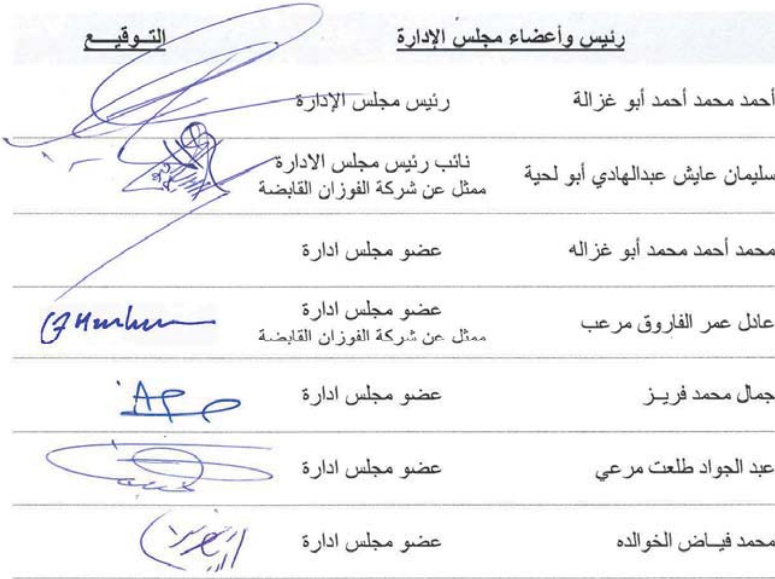 رئيس وأعضاء مجلس الإدارة التـوقيـع
أحمد محمد أحمد أبو غزالة رئيس مجلس الإدارة
سليمان عايش عبدالهادي أبو لحية نائب رئيس مجلس الادارة
ممثل عن شركة الفوزان القابضة
محمد أحمد محمد أبو غزاله عضو مجلس ادارة
عادل عمر الفاروق مرعب عضو مجلس ادارة
ممثل عن شركة الفوزان القابضة
جمال محمد فريـز عضو مجلس ادارة
عبد الجواد طلعت مرعي عضو مجلس ادارة
محمد فيـاض الخوالده عضو مجلس ادارة